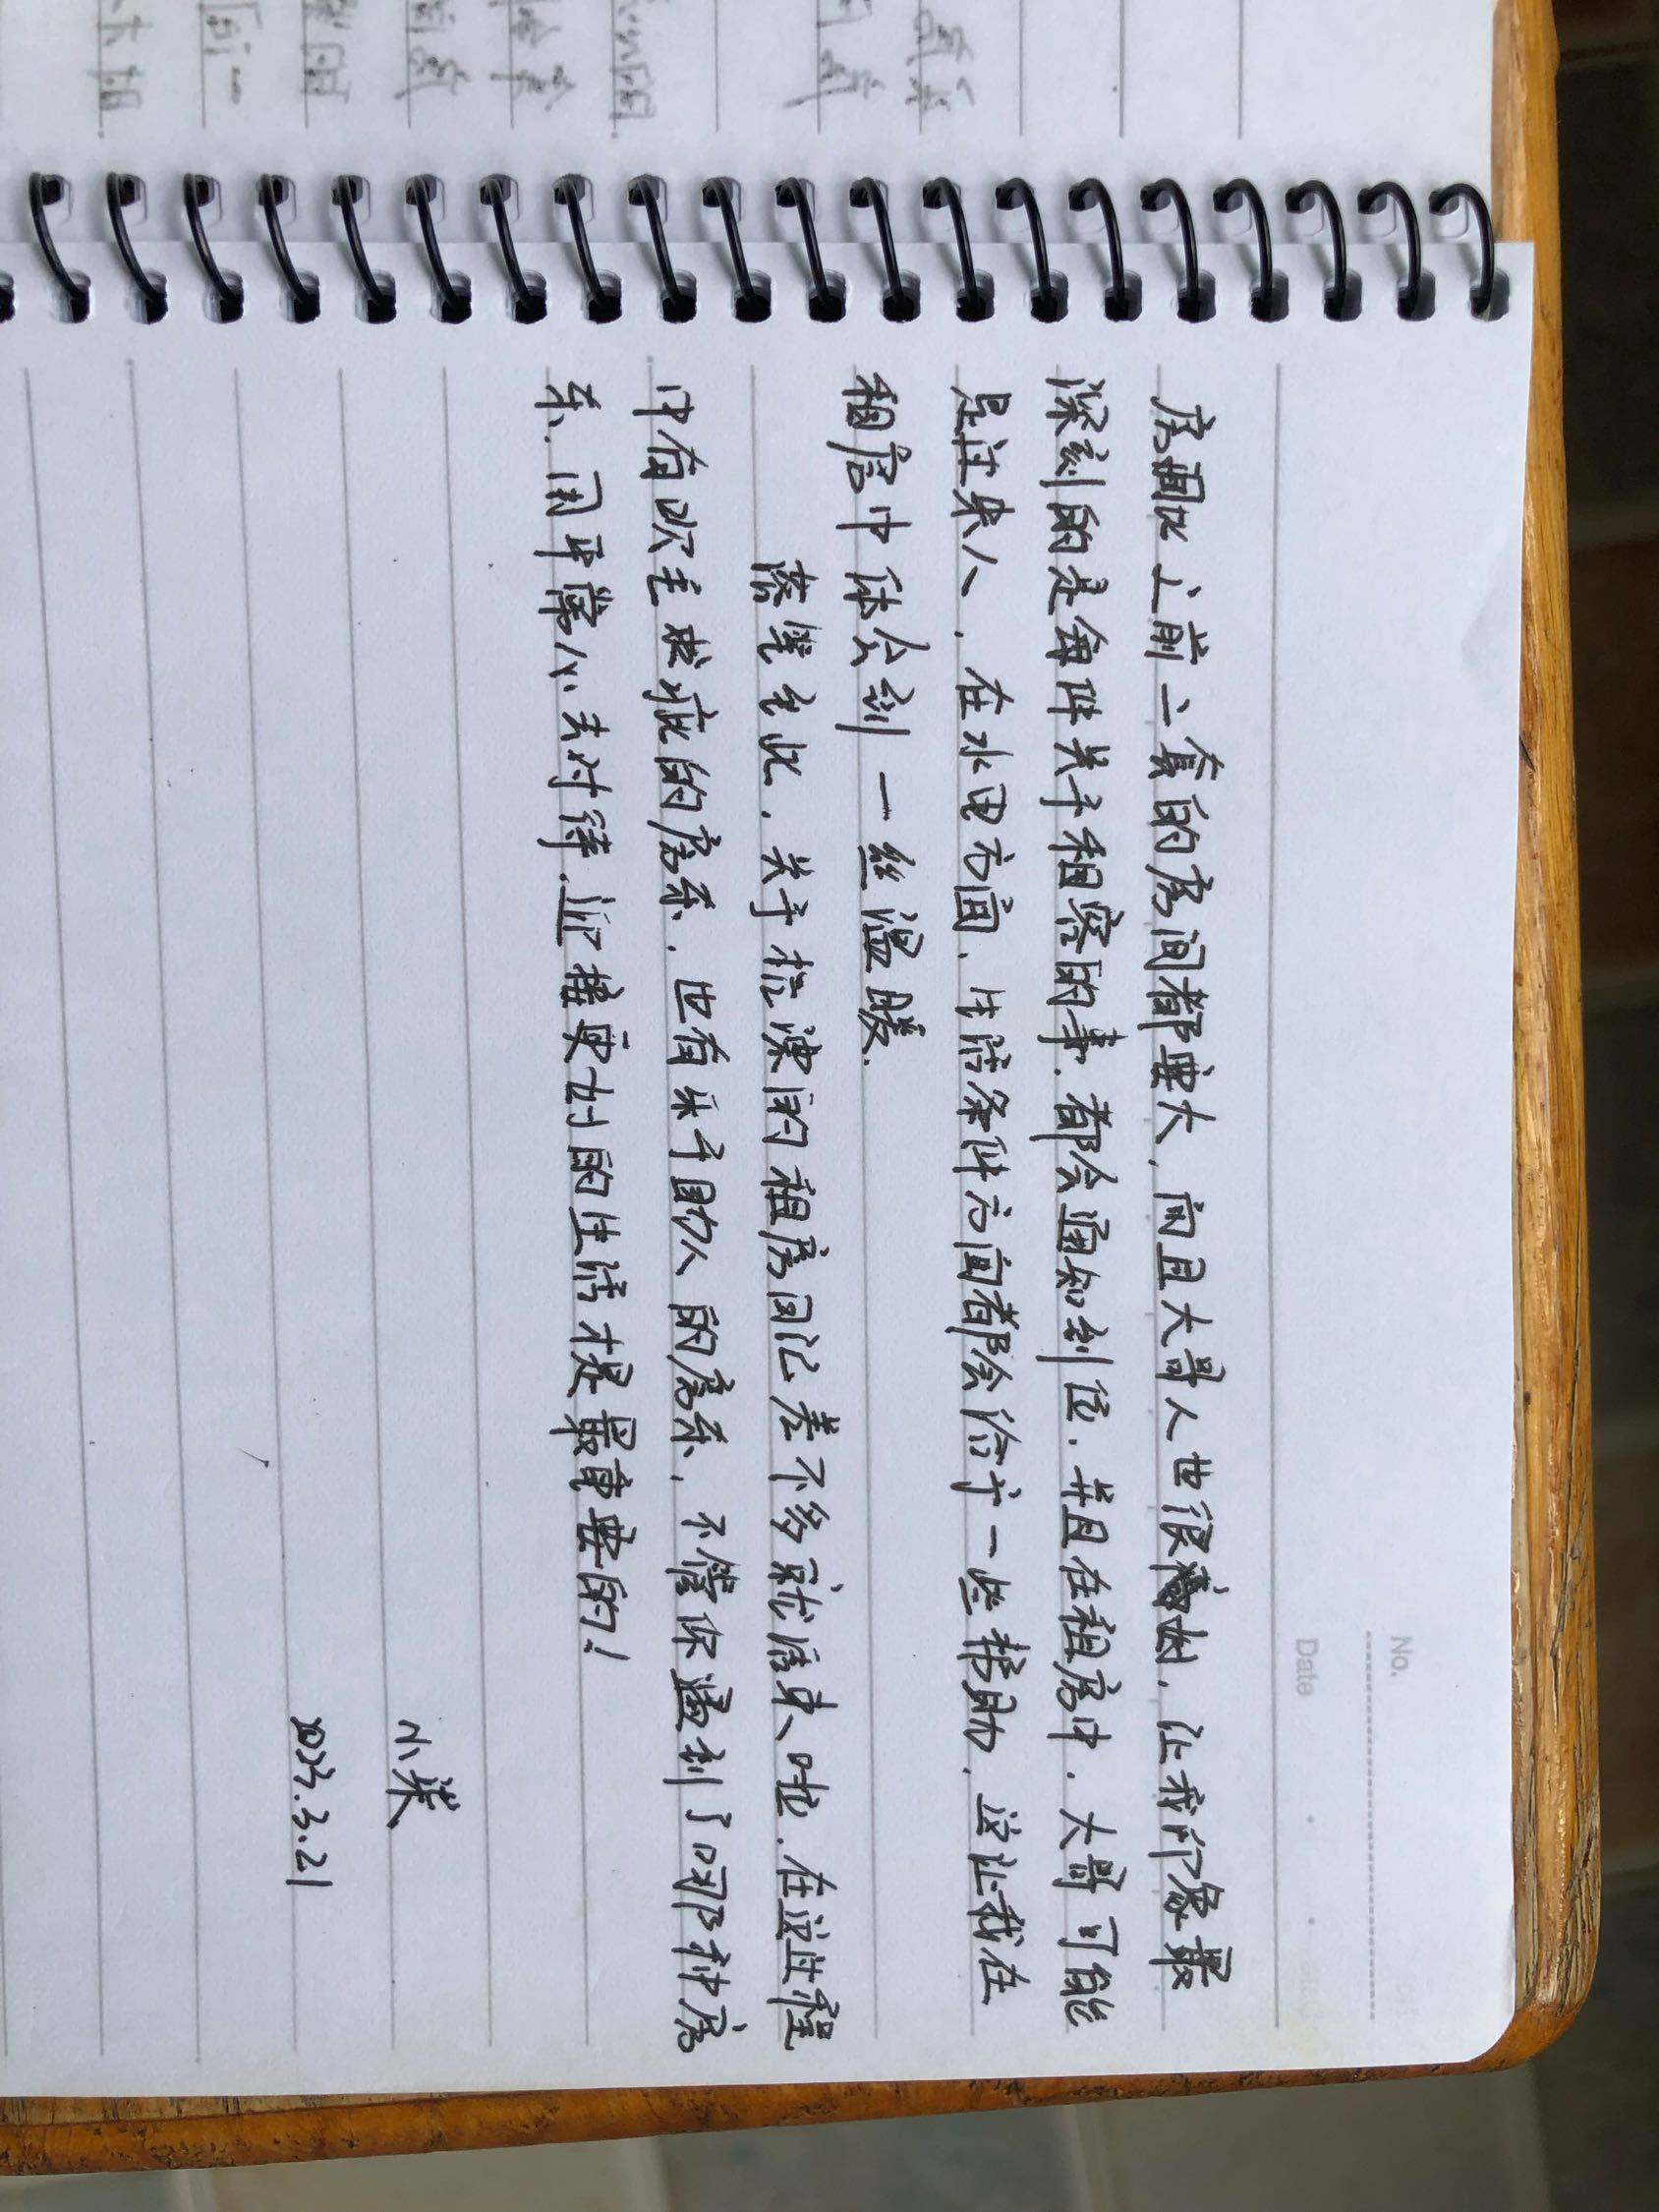 No.
Date
房间比之前二套的房间都要大，而且大哥人也很好，让我印象最
深刻的是每件关于租客的事，都会通知到位，并且在租房中，大哥可能
是过来人，在水电方面，生活条件方面都会给予一些帮助，这让我在
租房中体会到一丝温暖.
落笔至此，关于杭漂的租房回忆差不多就结束啦.在这过程
中有吹毛求疵的房东，也有乐于助人的房东，不管你遇到了哪种房
东，用平常心去对待.迎接更好的生活才是最重要的！
小柒
2023.3.21